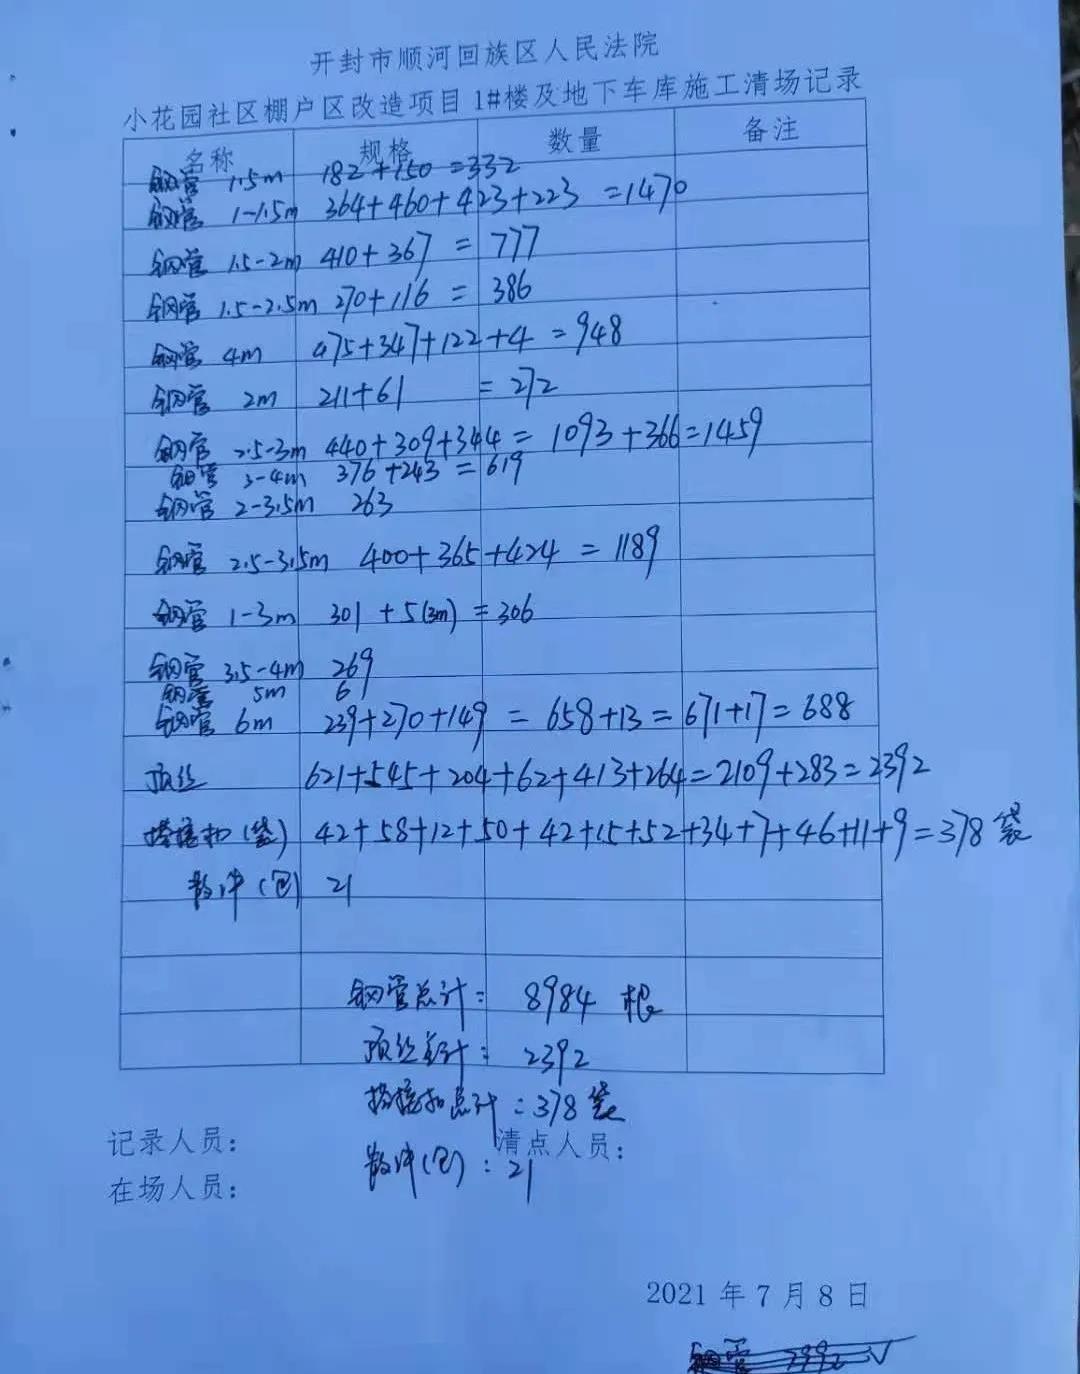 开封市顺河回族区人民法院
小花园社区棚户区改造项目1#楼及地下车库施工清场记录
名称 规格 数量 备注
钢管 1.5m 182+150=332
钢管 1-1.5m 364+460+423+223 =1470
钢管 1.5-2m 410+367 = 777
钢管 1.5-2.5m 270+116 = 386
钢管 4m 475+347+122+4 =948
钢管 2m 211+61 =272
钢管 2.5-3m 440+309+344= 1093+366=1459
钢管 3-4m 376+243=619
钢管 2-3.5m 263
钢管 2.5-3.5m 400+365+424 = 1189
钢管 1-3m 301+5(3m)=306
钢管 3.5-4m 269
钢管 5m 6
钢管 6m 239+270+149 = 658+13=671+17=688
顶丝 621+545+204+62+413+264=2109+283=2392
搭接扣(袋) 42+58+12+50+42+15+52+34+7+46+11+9=378袋
(包) 21
钢管总计: 8984 根
顶丝总计: 2392
搭接扣总计:378袋
(包):21
记录人员: 清点人员:
在场人员:
2021年7月8日